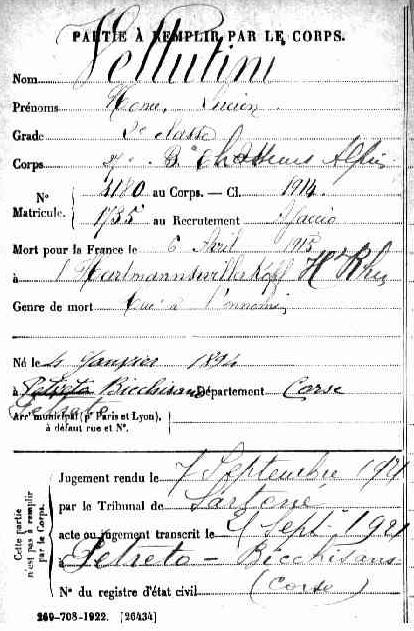 PARTIE À REMPLIR PAR LE CORPS.
Nom Vellutini
Prénoms Lucien
Grade 2e classe
Corps Bon Chasseurs Alpins
N° Matricule. 4180 au Corps. — Cl. 1914
1735 au Recrutement Ajaccio
Mort pour la France le 6 Avril 1915
à l'Hartmannswillerkopf Ht Rhin
Genre de mort Tué à l'ennemi
Né le 4 Janvier 1894
à Petreto Bicchisano Département Corse
Arr municipal (pr Paris et Lyon),
à défaut rue et N°.
Cette partie n'est pas à remplir par le Corps.
Jugement rendu le 7 Septembre 1921
par le Tribunal de Sartène
acte ou jugement transcrit le 21 Septre 1921
à Petreto - Bicchisano
N° du registre d'état civil (Corse)
269-708-1922. [26434]